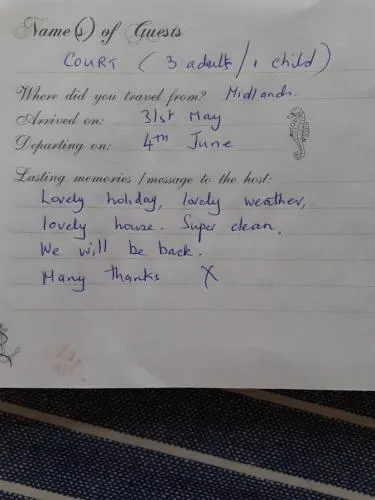 Name(s) of Guests
COURT ( 3 adults / 1 child )
Where did you travel from? Midlands.
Arrived on: 31st May
Departing on: 4th June
Lasting memories / message to the host:
Lovely holiday, lovely weather,
lovely house. Super clean.
We will be back.
Many thanks X